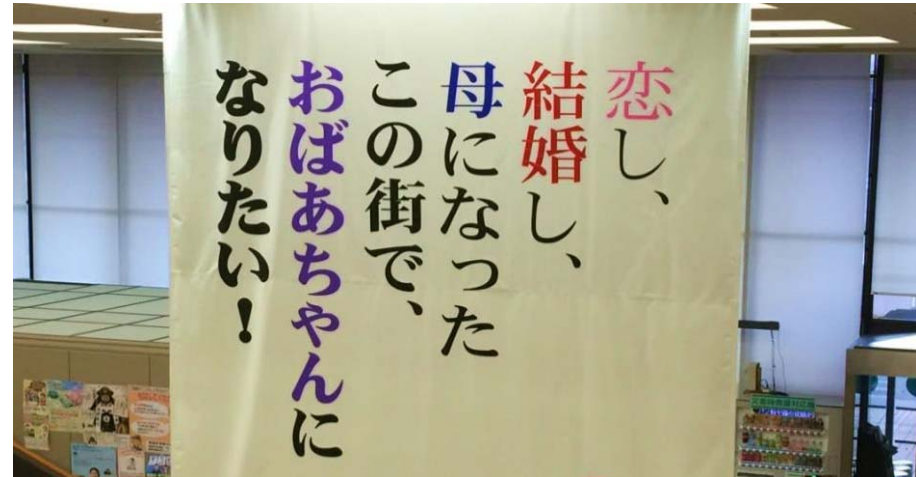 恋し、
結婚し、
母になった
この街で、
おばあちゃんに
なりたい！